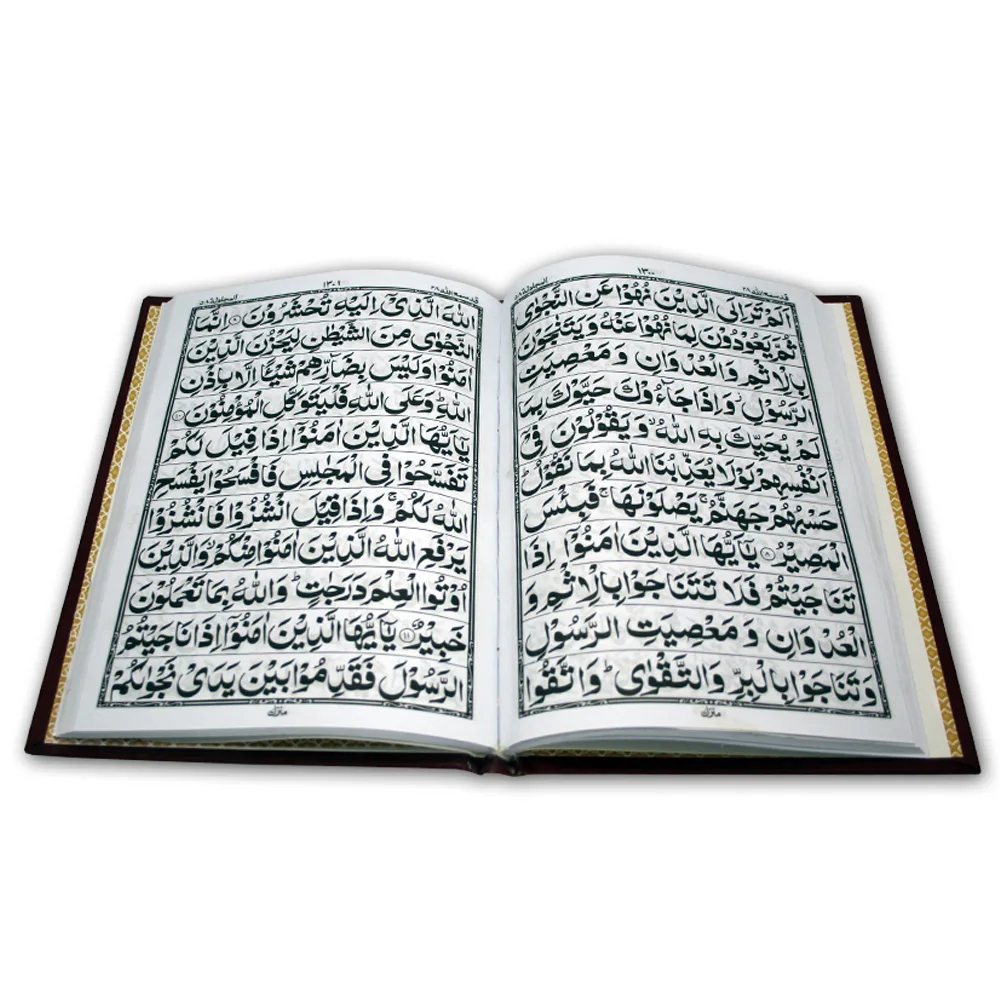 قد سمع الله ٢٨
١٣٠٠
المجادلة ٥٨
اَلَمْ تَرَ اِلَى الَّذِيْنَ نُهُوْا عَنِ النَّجْوٰى
ثُمَّ يَعُوْدُوْنَ لِمَا نُهُوْا عَنْهُ وَيَتَنٰجَوْنَ
بِالْاِثْمِ وَالْعُدْوَانِ وَمَعْصِيَتِ
الرَّسُوْلِ وَاِذَا جَآءُوْكَ حَيَّوْكَ بِمَا
لَمْ يُحَيِّكَ بِهِ اللّٰهُ وَيَقُوْلُوْنَ فِيْۤ
اَنْفُسِهِمْ لَوْلَا يُعَذِّبُنَا اللّٰهُ بِمَا نَقُوْلُ
حَسْبُهُمْ جَهَنَّمُ يَصْلَوْنَهَا فَبِئْسَ
الْمَصِيْرُ ٨ يٰۤاَيُّهَا الَّذِيْنَ اٰمَنُوْۤا اِذَا
تَنَاجَيْتُمْ فَلَا تَتَنَاجَوْا بِالْاِثْمِ وَ
الْعُدْوَانِ وَمَعْصِيَتِ الرَّسُوْلِ
وَتَنَاجَوْا بِالْبِرِّ وَالتَّقْوٰى وَاتَّقُوا
منزل
قد سمع الله ٢٨
١٣٠١
المجادلة ٥٨
اللّٰهَ الَّذِيْۤ اِلَيْهِ تُحْشَرُوْنَ ٩ اِنَّمَا
النَّجْوٰى مِنَ الشَّيْطٰنِ لِيَحْزُنَ الَّذِيْنَ
اٰمَنُوْا وَلَيْسَ بِضَآرِّهِمْ شَيْئًا اِلَّا بِاِذْنِ
اللّٰهِ وَعَلَى اللّٰهِ فَلْيَتَوَكَّلِ الْمُؤْمِنُوْنَ ١٠
يٰۤاَيُّهَا الَّذِيْنَ اٰمَنُوْۤا اِذَا قِيْلَ لَكُمْ
تَفَسَّحُوْا فِي الْمَجٰلِسِ فَافْسَحُوْا يَفْسَحِ
اللّٰهُ لَكُمْ وَاِذَا قِيْلَ انْشُزُوْا فَانْشُزُوْا
يَرْفَعِ اللّٰهُ الَّذِيْنَ اٰمَنُوْا مِنْكُمْ وَالَّذِيْنَ
اُوْتُوا الْعِلْمَ دَرَجٰتٍ وَاللّٰهُ بِمَا تَعْمَلُوْنَ
خَبِيْرٌ ١١ يٰۤاَيُّهَا الَّذِيْنَ اٰمَنُوْۤا اِذَا نَاجَيْتُمُ
الرَّسُوْلَ فَقَدِّمُوْا بَيْنَ يَدَيْ نَجْوٰىكُمْ
منزل